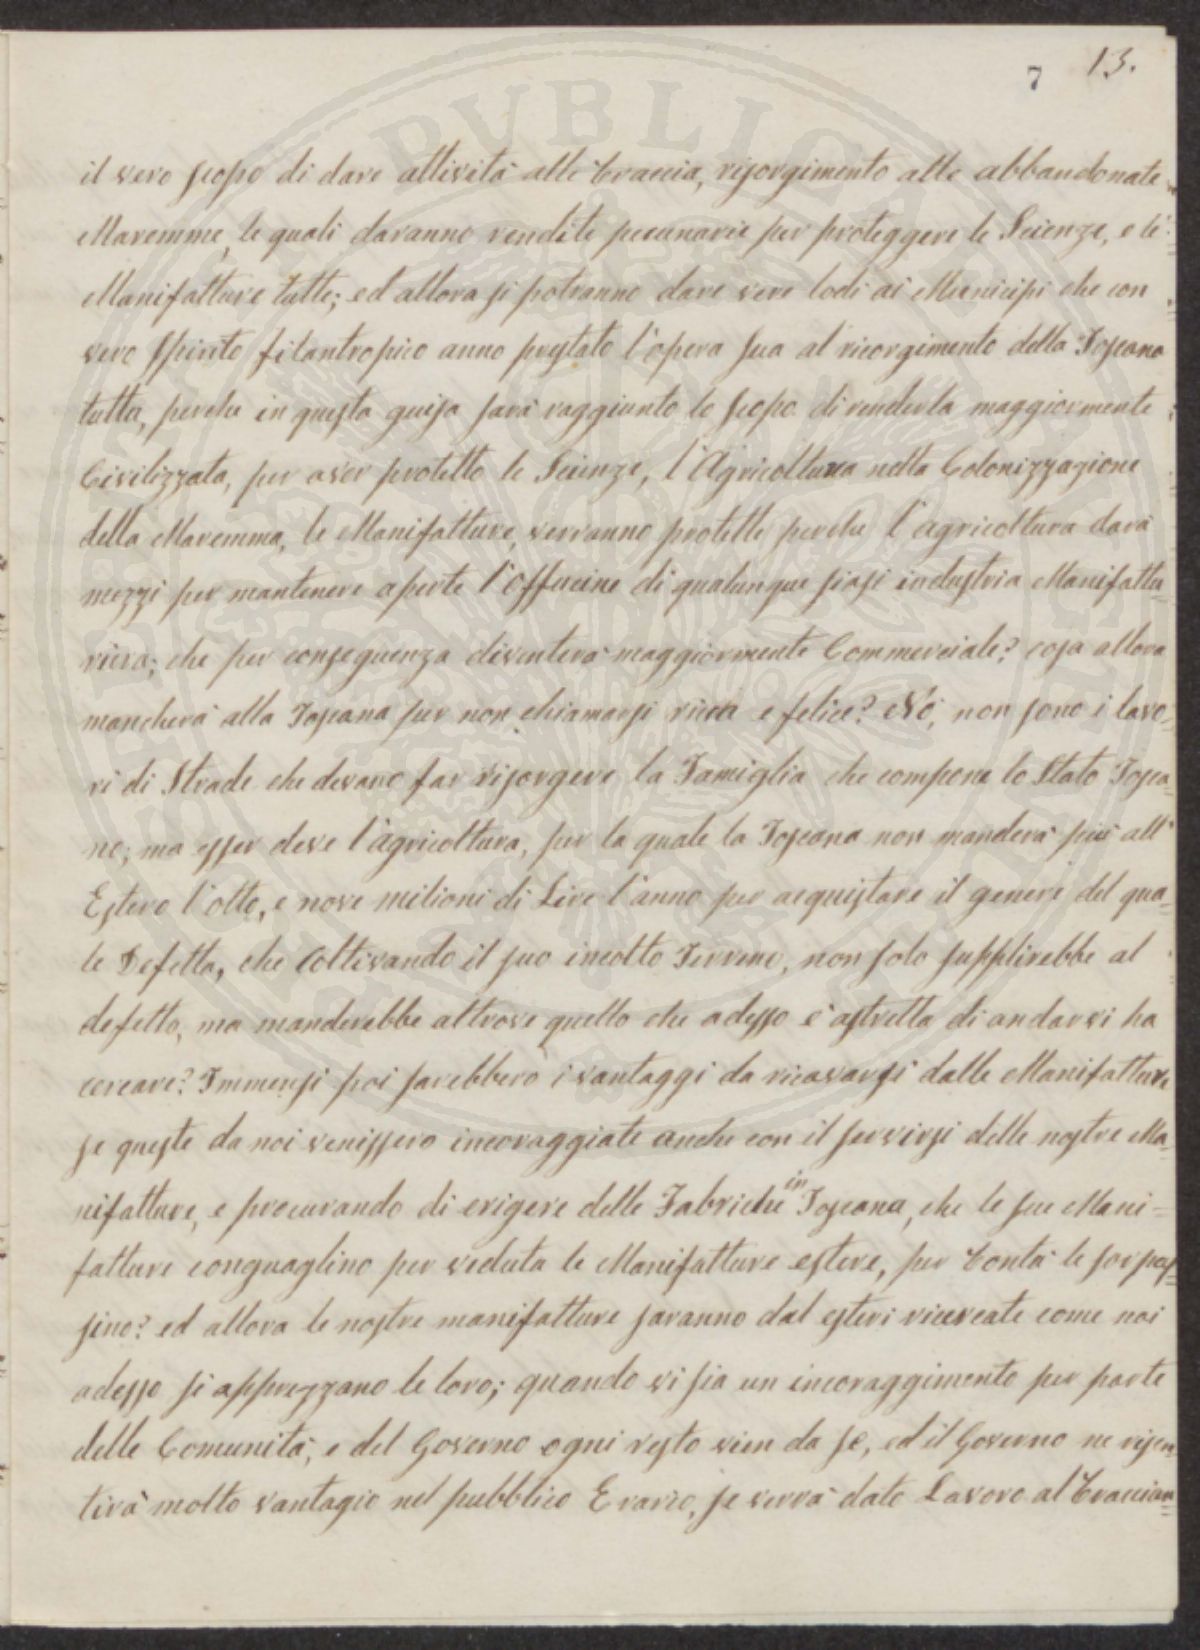 7 13.
il vero scopo di dare attività alle braccia, risorgimento alle abbandonate
Maremme, le quali daranno rendite pecunarie per proteggere le Scienze, e le
Manifatture tutte; ed allora si potranno dare vere lodi ai Municipi che con
vero Spirito filantropico anno prestato l'opera sua al risorgimento della Toscana
tutta, perche in questa guisa sarà raggiunto lo scopo di renderla maggiormente
Civilizzata, per aver protetto le Scienze, l'Agricoltura nella Colonizzazione
della Maremma, le Manifatture, verranno protette perche l'agricoltura darà
mezzi per mantenere aperte l'offucine di qualunque siasi industria Manifattu=
riera; che per conseguenza diventerà maggiormente Commerciale? cosa allora
mancherà alla Toscana per non chiamarsi ricca e felice? Nò, non sono i lavo=
ri di Strade che devano far risorgere la Famiglia che compone lo Stato Tosca=
no; ma esser deve l'agricoltura, per la quale la Toscana non manderà più all'
Estero l'otto, e nove milioni di Lire l'anno per acquistare il genere del qua=
le Defetta, che Coltivando il suo incolto Terreno, non solo supplirebbe al
defetto, ma manderebbe altrove quello che adesso è astretta di andarvi ha
cercare? Immensi poi sarebbero i vantaggi da ricavarsi dalle Manifatture
se queste da noi venissero incoraggiate anche con il servirsi delle nostre Ma=
nifatture, e procurando di erigere delle Fabriche in Toscana, che le sue Mani=
fatture conguaglino per veduta le Manifatture estere, per bontà le sorpas=
sino? ed allora le nostre manifatture saranno dal esteri ricercate come noi
adesso si apprezzano le loro; quando vi sia un incoraggimento per parte
delle Comunità, e del Governo ogni resto vien da se, ed il Governo ne risen=
tirà molto vantagio nel pubblico Erario, se verrà dato Lavoro al braccian=